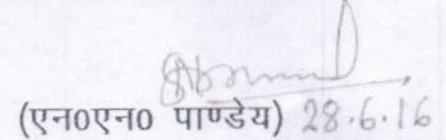 (एन0एन0 पाण्डेय) 28.6.16